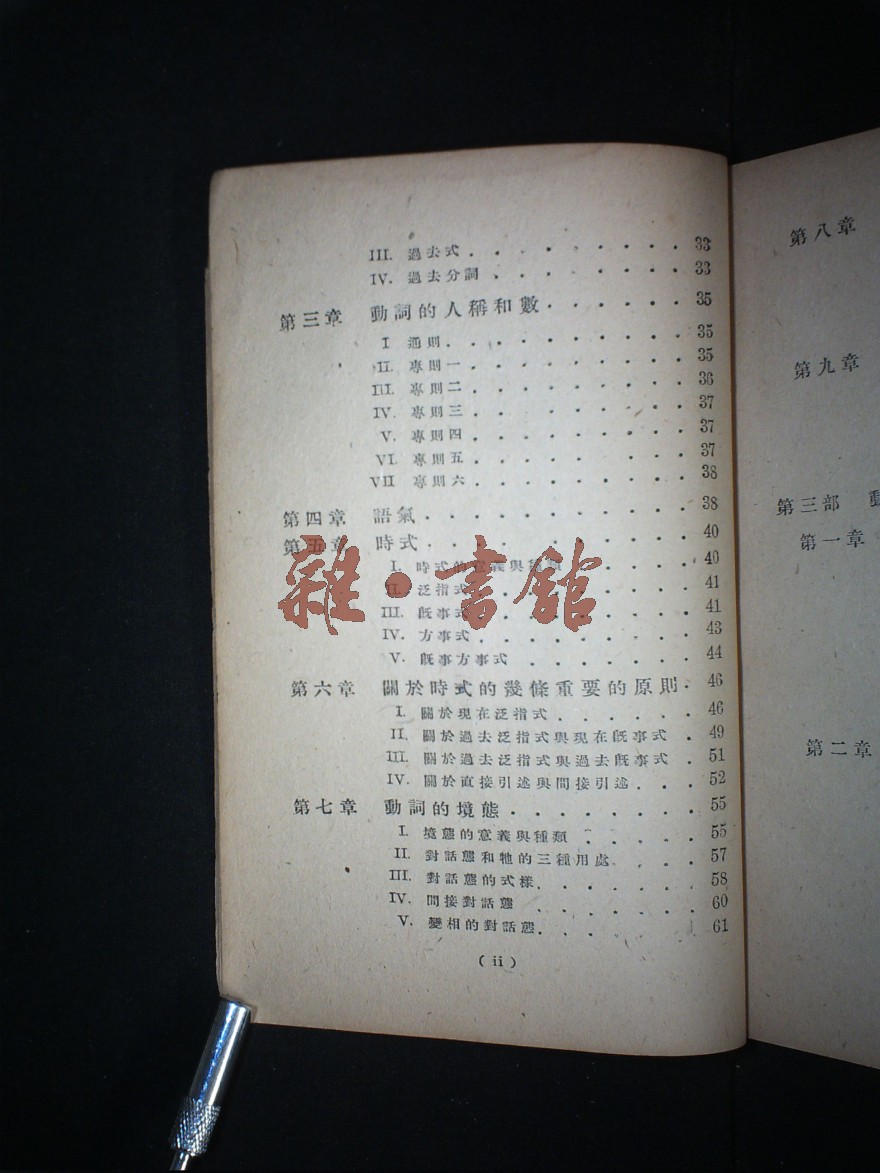 III. 過去式 . . . . . . . . . 33
IV. 過去分詞 . . . . . . . . 33
第三章 動詞的人稱和數 . . . . . . 35
I 通則 . . . . . . . . . 35
II. 專則一 . . . . . . . . . 35
III. 專則二 . . . . . . . . . 36
IV. 專則三 . . . . . . . . . 37
V. 專則四 . . . . . . . . . 37
VI. 專則五 . . . . . . . . . 37
VII 專則六 . . . . . . . . . 38
第四章 語氣 . . . . . . . . . . 38
第五章 時式 . . . . . . . . . . 40
I. 時式的意義與種類 . . . . . 40
II. 泛指式 . . . . . . . . 41
III. 既事式 . . . . . . . . 41
IV. 方事式 . . . . . . . . 43
V. 既事方事式 . . . . . . . 44
第六章 關於時式的幾條重要的原則 . 46
I. 關於現在泛指式 . . . . . . 46
II. 關於過去泛指式與現在既事式 . 49
III. 關於過去泛指式與過去既事式 . 51
IV. 關於直接引述與間接引述 . . . 52
第七章 動詞的境態 . . . . . . . . 55
I. 境態的意義與種類 . . . . . 55
II. 對話態和牠的三種用處 . . . . 57
III. 對話態的式樣 . . . . . . . 58
IV. 間接對話態 . . . . . . . 60
V. 變相的對話態 . . . . . . . 61
( ii )
第八章
第九章
第三部 動
第一章
第二章
雜·書館